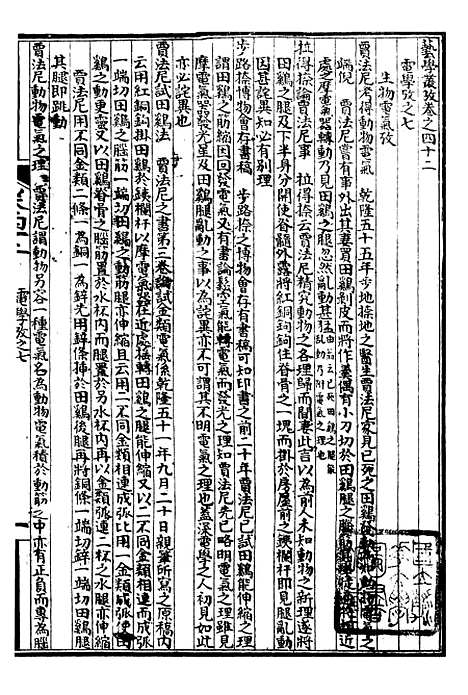 藝學叢攷卷之四十二
電學攷之七
生物電氣攷
賈法尼考得動物電氣　乾隆五十五年步地捺地之醫生賈法尼家見已死之田鷄發動
端倪　賈法尼嘗有事外出其妻買田鷄剝皮而將作羹偶有小刀切於田鷄腿之腦筋近
處之摩電氣器轉動乃見田鷄之腿忽然亂動甚猛
拉得捺論賈法尼事　拉得捺云賈法尼精究動物之各理歸而聞妻此言以為前人未知動物之新理遂將
田鷄之腿及下半身分開使脊髓外露將紅銅鉤鉤住脊骨之一塊而掛於房屋前之鐵欄杆即見腿亂動
因甚詫異知必有別理
步路捺之博物會存有書稿　步路捺之博物會存有書稿可知印書之前二十年賈法尼已試田鷄能伸縮
謂田鷄之筋縮因回發電氣又有書論鬆空氣能轉電氣而發光之理知賈法尼先已略明電氣之理雖見
摩電氣器發光星及田鷄腿亂動之事以為詫異亦不可謂其不明電氣之理也蓋深電學之人初見如此
亦必詫異也
賈法尼試田鷄法　賈法尼之書第三卷論試金類電氣係乾隆五十一年九月二十日親筆所寫之原稿內
云用紅銅鉤掛田鷄於鐵欄杆以摩電氣器在近處捺轉田鷄之腿能伸縮又以二不同金類相連而成弧
一端切田鷄之腦筋一端切田鷄之動筋腿亦伸縮且云用二不同金類相連成弧比用一金類成弧使田
鷄之動更靈又以田鷄脊骨之腦筋置於水杯內而腿置於另水杯內再以金類弧連二杯之水腿亦伸縮
賈法尼用不同金類二條一為銅一為鋅先用鋅條插於田鷄後腿再將銅條一端切鋅一端切田鷄腿
其腿即跳動
賈法尼動物電氣之理　賈法尼謂動物另容一種電氣名為動物電氣積於動筋之中亦有正負而專為腦
電學攷之七